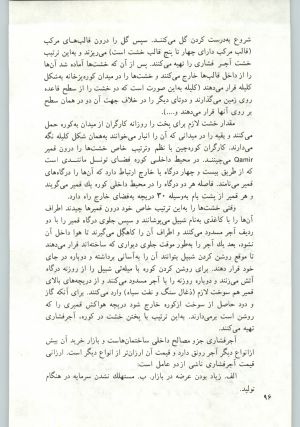 شروع به‌درست کردن گل می‌کنند. سپس گل را درون قالب‌های مرکب
(قالب مرکب دارای چهار تا پنج قالب خشت است) می‌ریزند و به‌این ترتیب
خشت آجر فشاری را تهیه می‌کنند. پس از آن که خشت‌ها آماده شد آن‌ها
را از داخل قالب‌ها خارج می‌کنند و خشت‌ها را در میدان کوره‌پزخانه به‌شکل
کلیله قرار می‌دهند (کلیله به‌این صورت است که دو خشت را از سطح قاعده
روی زمین می‌گذارند و دوتای دیگر را در خلاف جهت آن دو در همان سطح
بر روی آنها قرار می‌دهند و...).
مقدار خشت لازم برای پخت را روزانه کارگران از میدان به‌کوره حمل
می‌کنند و بقیه را در میدانی که آن را انبار می‌خوانند به‌همان شکل کلیله نگه
می‌دارند. کارگران کوره‌چین با نظم وترتیب خاص خشت‌ها را درون قمیر
Qamir می‌چینند. در محیط داخلی کوره فضای تونسل مانندی است
که از طریق بیست و چهار درگاه با خارج ارتباط دارد که آن‌ها را درگاه‌های
قمیر می‌نامند. فاصله هر دو درگاه را در محیط داخلی کوره یك قمیر می‌گویند
و هر قمیر از پشت بام به‌وسیله ۳۰ دریچه به‌فضای خارج راه دارد.
وقتی خشت‌ها را به‌این ترتیب خاص خود درون قمیرها چیدند اطراف
آن‌ها را با کاغذی به‌نام شبیل می‌پوشانند و سپس جلوی درگاه قمیر را با دو
ردیف آجر مسدود می‌کنند و اطراف آن را کاهگل می‌گیرند تا هوا داخل آن
نشود، بعد یك آجر را به‌طور موقت جلوی دیواری که ساخته‌اند قرار می‌دهند
تا موقع روشن کردن شبیل بتوانند آن را به‌آسانی برداشته و دوباره در جای
خود قرار دهند. برای روشن کردن کوره با میله‌ئی شبیل را از روزنه درگاه
آتش می‌زنند و دوباره روزنه را با آجر مسدود می‌کنند و از دریچه‌های بالای
قمیر هم سوخت لازم (ذغال سنگ و نفت سیاه) وارد می‌کنند. برای آنکه گاز
و دود حاصل از سوخت ازکوره خارج شود دریچه هواکش قمیری را که
روشن است برمی‌دارند. به‌این ترتیب با پختن خشت در کوره، آجرفشاری
تهیه می‌کنند.
آجرفشاری جزو مصالح داخلی ساختمان‌هاست و بازار خرید آن بیش
ازانواع دیگر آجر رونق دارد و قیمت آن ارزان‌تر از انواع دیگر است. ارزانی
قیمت آجرفشاری ناشی از دو عامل است:
الف. زیاد بودن عرضه در بازار، ب. مستهلك نشدن سرمایه در هنگام
تولید.
۹۶